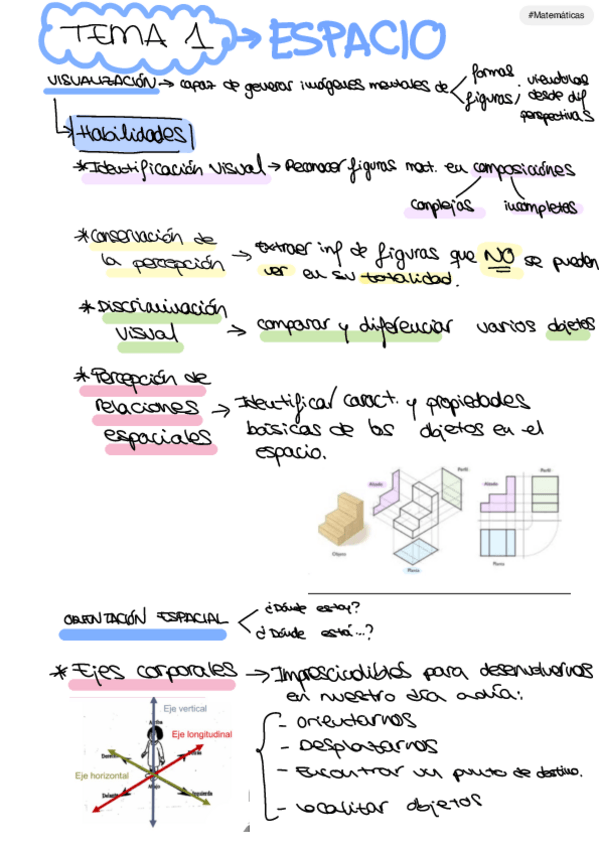 #Matemáticas
TEMA 1 → ESPACIO
VISUALIZACIÓN → capaz de generar imágenes mentales de < formas
figuras; viendolas desde dif perspectivas
Habilidades
* Identificación visual → Reconocer figuras mat. en composiciónes
complejas incompletas
* Conservación de la percepción → extraer inf de figuras que NO se pueden
ver en su totalidad.
* Discriminación visual → comparar y diferenciar varios objetos
* Percepción de
relaciones → Identificar caract. y propiedades
espaciales básicas de los objetos en el
espacio.
Alzado Perfil
Objeto
Planta
Alzado Perfil
Planta
ORIENTACIÓN ESPACIAL < ¿Dónde estoy?
¿Dónde está...?
* Ejes corporales → Imprescindibles para desenvolvernos
en nuestro día a día:
- orientarnos
- Desplazarnos
- Encontrar un punto de destino.
- localizar objetos
Eje vertical
Arriba
Eje longitudinal
Derecha Detrás
Eje horizontal
Delante Abajo Izquierda